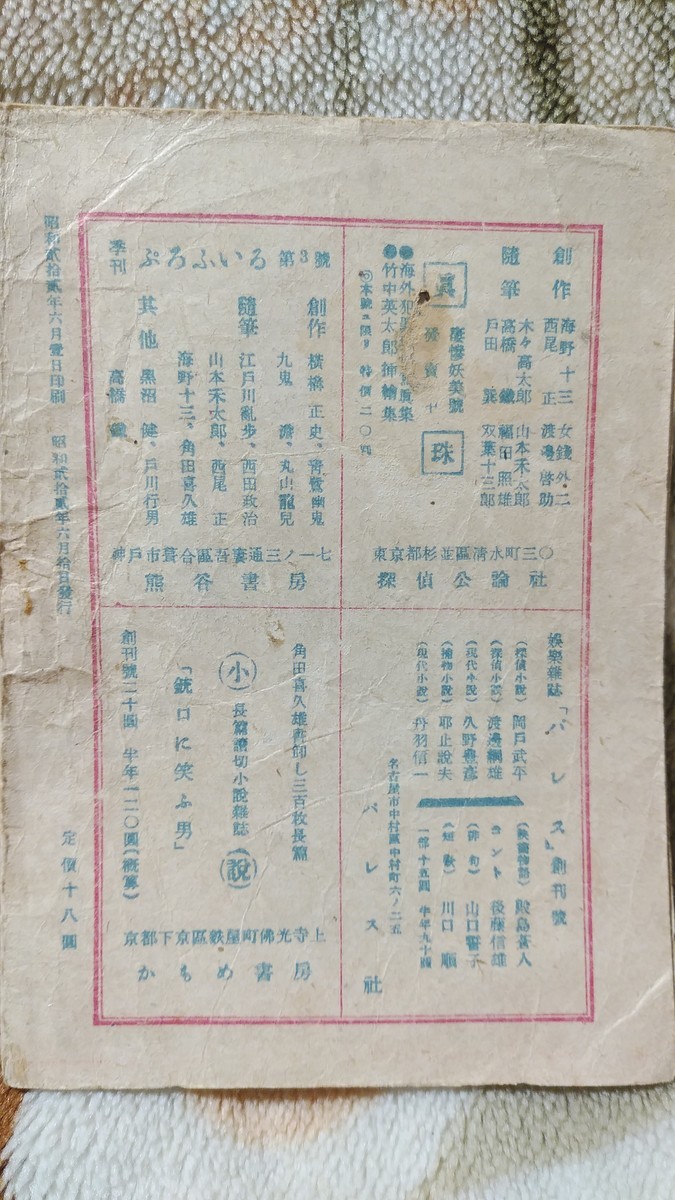 創作 海野十三 女銭外二
西尾 正 渡邊啓助
隨筆 木々高太郎 山本禾太郎
高橋 鐵 福田照雄
戸田 巽 双葉十三郎
眞珠
凄慘妖美號
發賣中
●海外犯罪
●竹中英太郎挿繪集
本號ニ限リ 特價二〇
東京都杉並區清水町三〇
探偵公論社
季刊 ぷろふいる 第3號
創作 横橋正史、青鷺幽鬼
九鬼 澹、丸山龍兒
隨筆 江戸川亂歩、西田政治
山本禾太郎、西尾 正
海野十三、角田喜久雄
其他 黒沼 健、戸川行男
高橋 鐵
神戸市葺合區吾妻通三ノ一七
熊谷書房
娯樂雜誌「パレス」創刊號
(探偵小説) 岡戸武平
(探偵小説) 渡邊綱雄
(現代小説) 久野豊彦
(捕物小説) 耶止説夫
(現代小説) 丹羽信一
(映畫物語) 飯島蒼人
コント 後藤信雄
(俳句) 山口誓子
(短歌) 川口 順
一部十五圓 半年九十圓
名古屋市中村區中村町六ノ二五
パレス社
角田喜久雄書卸し三百枚長篇
小説
長篇讀切小説雜誌
「銃口に笑ふ男」
創刊號二十圓 半年一二〇圓(概算)
京都下京區麩屋町佛光寺上
かもめ書房
昭和貳拾貳年六月壹日印刷 昭和貳拾貳年六月拾日發行
定價十八圓